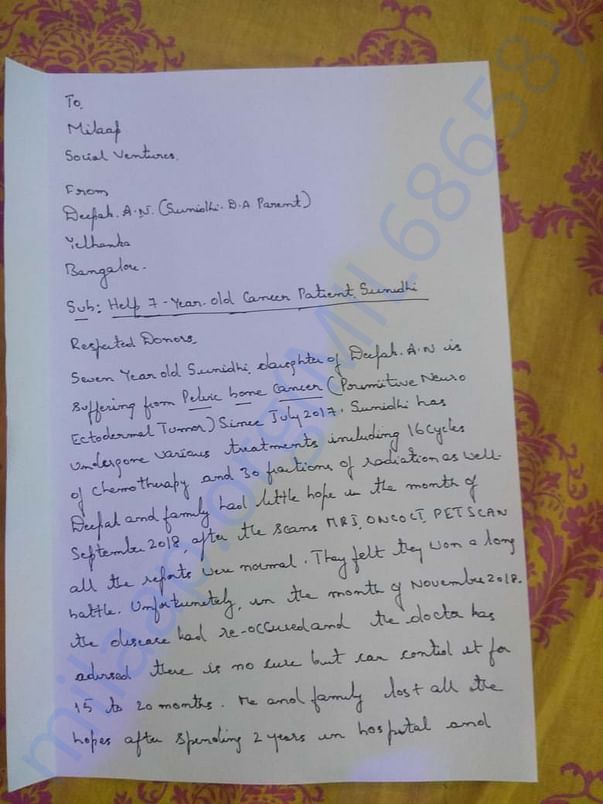 To,
Milaap
Social Ventures.
From
Deepak. A.N. (Sunidhi. D.A Parent)
Yelhanka
Bangalore.
Sub: Help 7-Year old Cancer Patient Sunidhi
Respected Donors,
Seven Year old Sunidhi, daughter of Deepak. A.N is
suffering from Pelvic bone cancer (Primitive Neuro
Ectodermal Tumor) Since July 2017. Sunidhi has
undergone various treatments including 16 cycles
of chemotherapy and 30 fractions of radiation as well.
Deepak and family had little hope in the month of
September 2018 after the scans MRI, ONCOCT, PETSCAN
all the reports were normal. They felt they won a long
battle. Unfortunetely, in the month of November 2018.
the disease had re-occured and the doctor has
advised there is no cure but can control it for
15 to 20 months. Me and family lost all the
hopes after spending 2 years in hospital and
milaap.org/MIL_686581